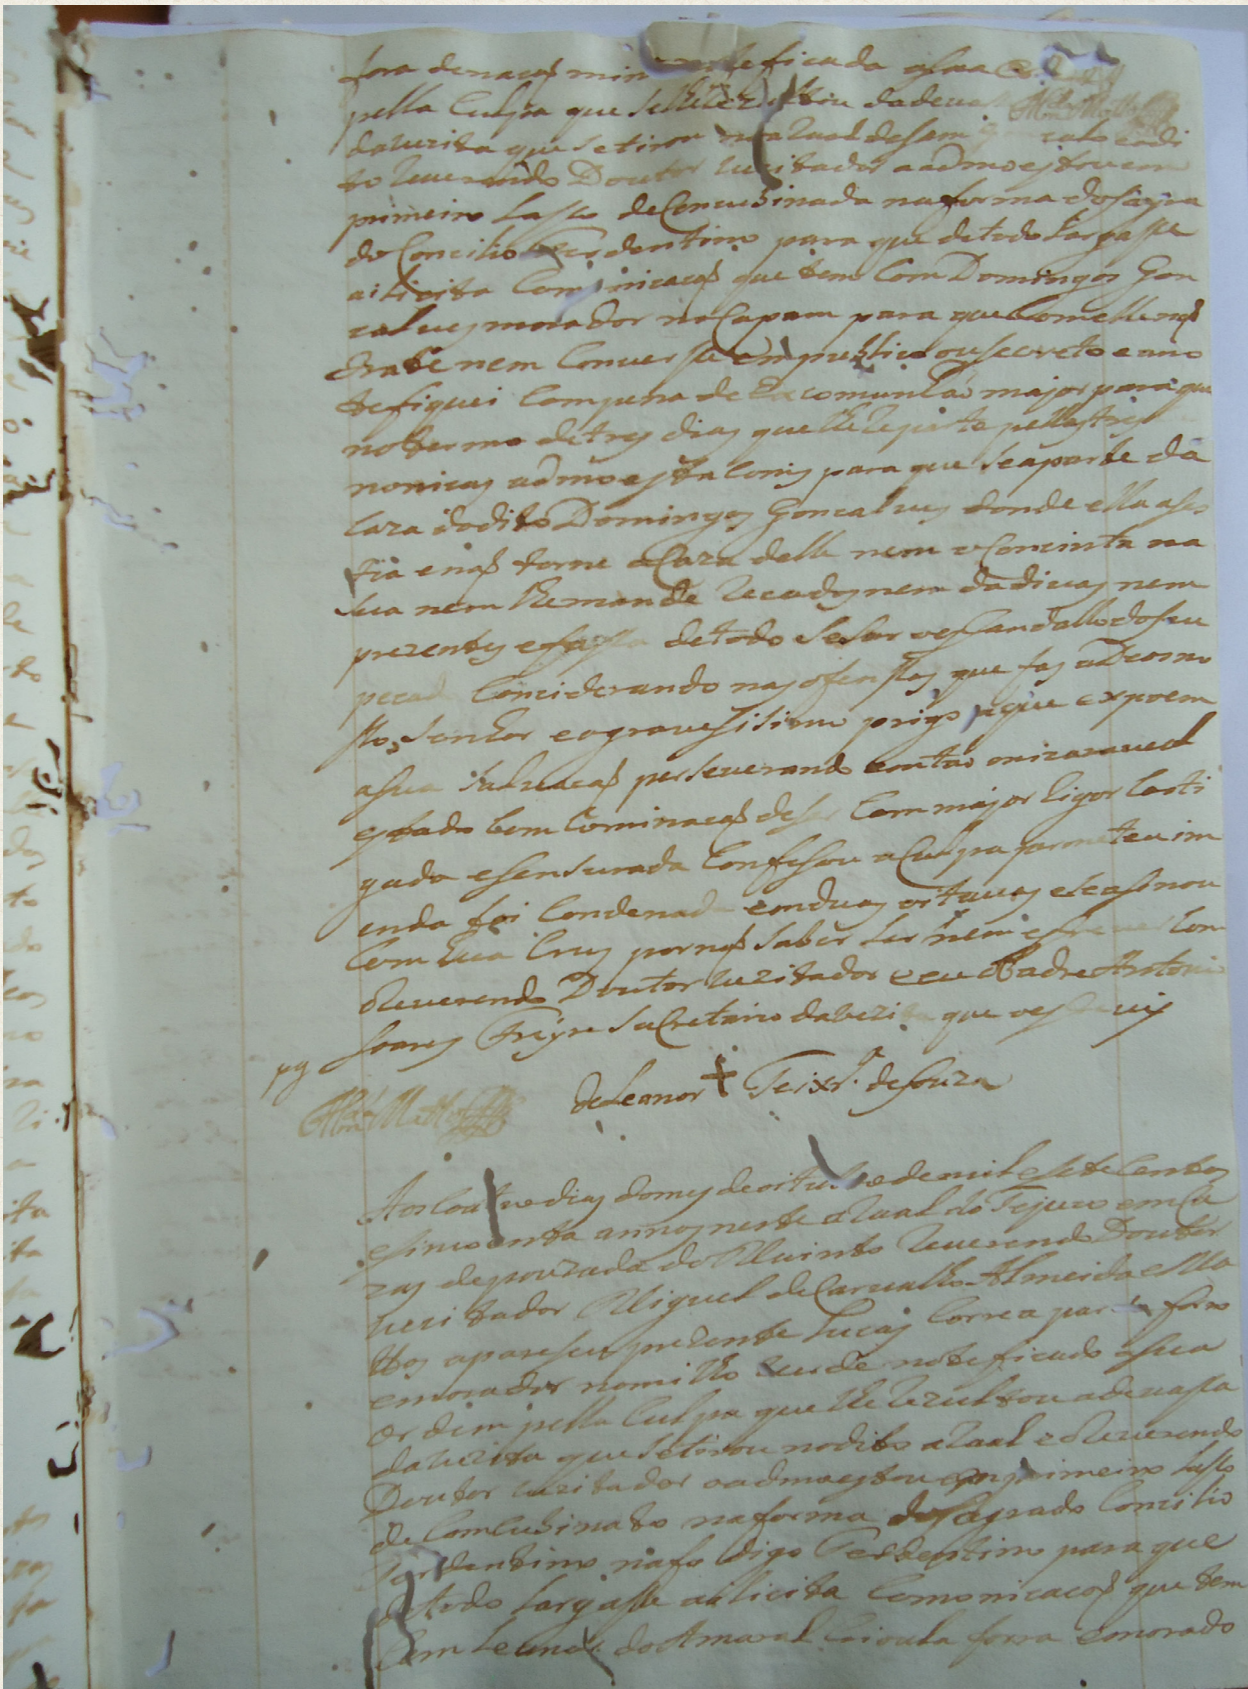 fora denacaõ min noteficada asua
pella Culpa que selheRezultou dadevasa
davezita que setirou no aRaal desam Gonçalo eodi
to Reverendo Doutor vezitador aadmoestou em
primeiro lasso deConcubinada naforma dosagra
do Concilio Terdentino para que detodo largasse
ailicita Comonicacaõ que tem Com Domingos Gon
calves morador noCapam para que Comelle naõ
trate nem Converse em publico ou secreto e ano
tefiquei Compena de Excomunhaõ major para que
notermo detres dias que lheReparte pellastres
nonicas admoestaçonis para que seaparte da
Caza dodito Domingos Goncalves donde ella asis
tia enaõ torne aCaza delle nem oConcinta na
sua nem lhemande Recados nem dadivas nem
prezentes efassa detodo sesar oescandallo doseu
pecad Conciderando nas ofensas que fas aDeos no
sso Senhor eogravissisimo prigo aque expoem
asua salvacaõ perseverando emtaõ mizaravel
estado Com Cominacaõ deser Com major Rigor Casti
gada esensurada Confesou aCulpa parmeteu im
enda foi Condenada emduas oitavas eseasinou
Com hua Crus pornaõ saber ler nem escrever Com
oReverendo Doutor vezitador eeu oPadre Antonio
Soares Freyre saCretario davezita que oescrevij
pg
deLeanor + Teixrª. desouza
Aos Coatro dias domes deoitubro demil esete Centos
esincoenta annos neste aRaal do Tejuco emCa
zas depouzada do Muinto Reverendo Doutor
vezitador Miguel de Carvalho Almeida eMa
ttos apareseu prezente Lucas Correa pardo forro
emorador nomilho verde noteficado asua
ordem pella Culpa que lheRezultou adevasa
davezita que setirou nodito aRaal eoReverendo
Doutor vezitador oadmoestou em primeiro lasso
de Comcubinato naforma dosagrado Concilio
Tordentino nafo digo Terdentino para que
detodo largasse ailicita Comonicacaõ que tem
Com doAmaral Crioula forra emorado